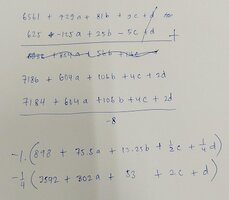 6561 + 729a + 81b + 9c + d
625 + -125a + 25b - 5c + d +
7186 + 604a + 106b + 4c + 2d
7184 + 604a + 106b + 4c + 2d
-8
-1. (898 + 75.5a + 13.25b + 1/2c + 1/4d)
-1/4 (3592 + 302a + 53 + 2c + d)